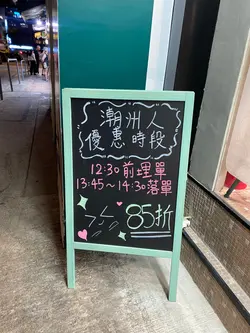 潮州人
優惠時段
12:30前埋單
13:45~14:30落單
85折